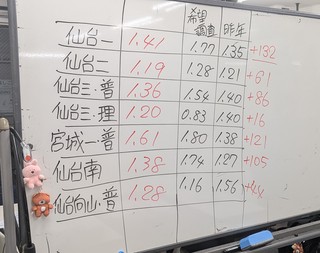 希望調査 昨年
仙台一 1.41 1.77 1.35 +192
仙台二 1.19 1.28 1.21 +61
仙台三・普 1.36 1.54 1.40 +86
仙台三・理 1.20 0.83 1.40 +16
宮城一・普 1.61 1.80 1.38 +121
仙台南 1.38 1.74 1.27 +105
仙台向山・普 1.28 1.16 1.56 +44